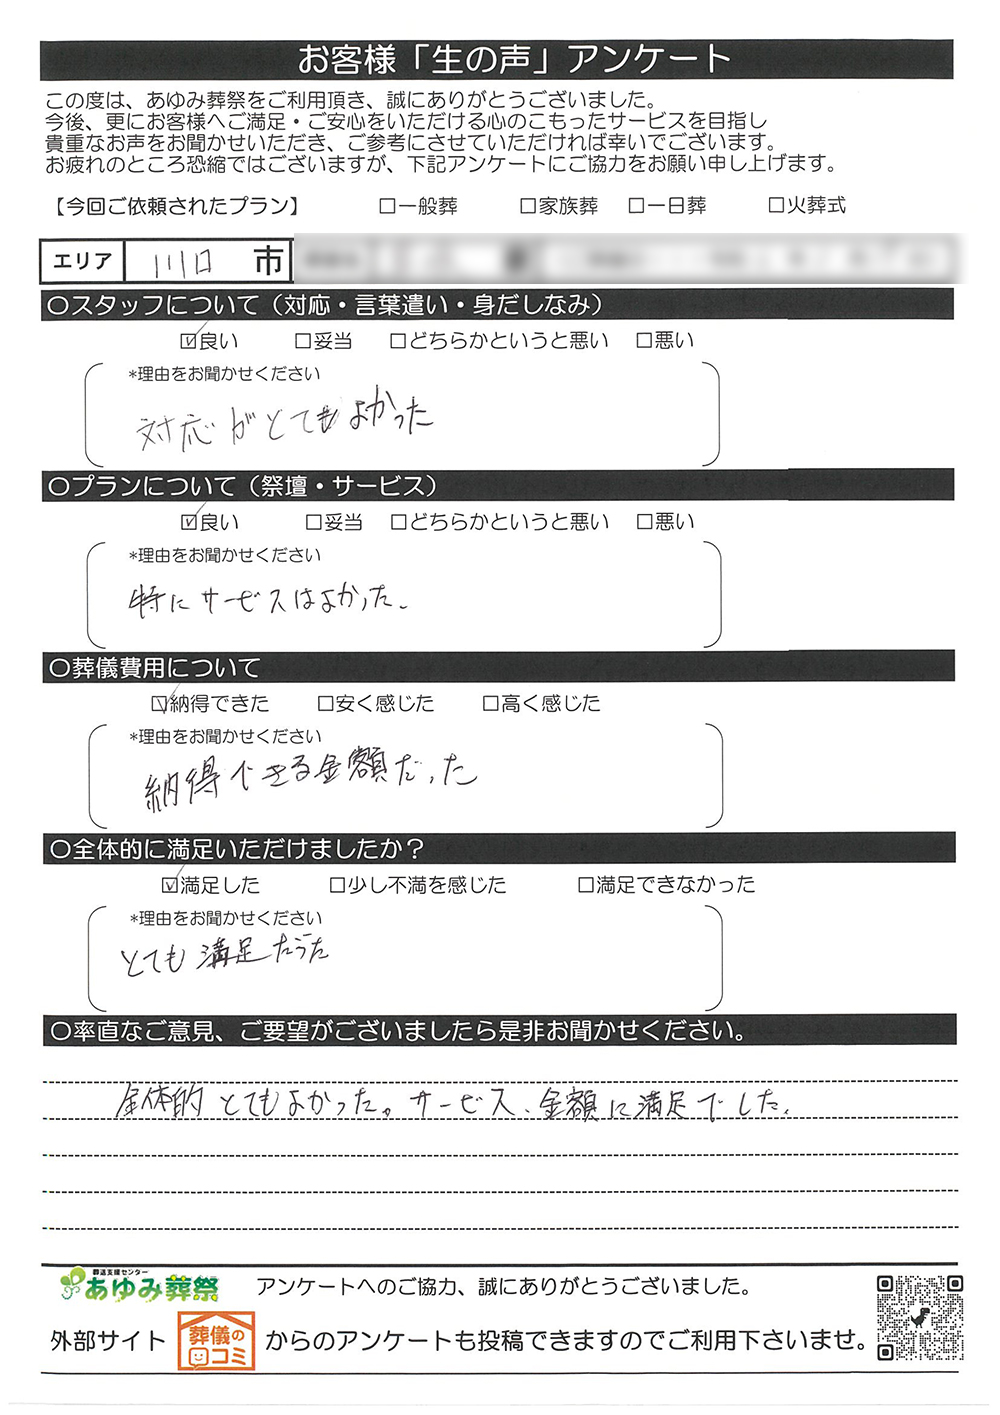 お客様「生の声」アンケート
この度は、あゆみ葬祭をご利用頂き、誠にありがとうございました。
今後、更にお客様へご満足・ご安心をいただける心のこもったサービスを目指し
貴重なお声をお聞かせいただき、ご参考にさせていただければ幸いでございます。
お疲れのところ恐縮ではございますが、下記アンケートにご協力をお願い申し上げます。
【今回ご依頼されたプラン】 □一般葬 □家族葬 □一日葬 □火葬式
エリア 川口 市
〇スタッフについて（対応・言葉遣い・身だしなみ）
☑良い □妥当 □どちらかというと悪い □悪い
*理由をお聞かせください
対応がとてもよかった
〇プランについて（祭壇・サービス）
☑良い □妥当 □どちらかというと悪い □悪い
*理由をお聞かせください
特にサービスはよかった。
〇葬儀費用について
☑納得できた □安く感じた □高く感じた
*理由をお聞かせください
納得できる金額だった
〇全体的に満足いただけましたか？
☑満足した □少し不満を感じた □満足できなかった
*理由をお聞かせください
とても満足だった
〇率直なご意見、ご要望がございましたら是非お聞かせください。
全体的とてもよかった。サービス、金額に満足でした。
葬送支援センター
あゆみ葬祭 アンケートへのご協力、誠にありがとうございました。
外部サイト 葬儀の口コミ からのアンケートも投稿できますのでご利用下さいませ。